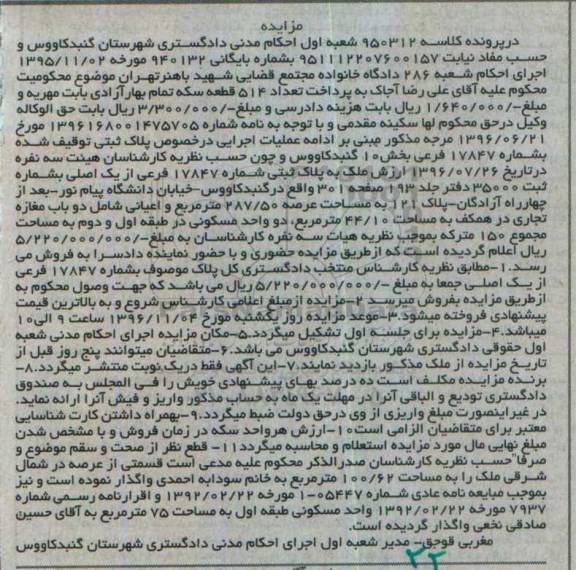 مزایده
درپرونده کلاسه ۹۵۰۳۱۲ شعبه اول احکام مدنی دادگستری شهرستان گنبدکاووس و
حسب مفاد نیابت ۹۵۱۱۱۲۲۰۷۶۰۰۱۵۷ بشماره بایگانی ۹۴۰۱۳۲ مورخه ۱۳۹۵/۱۱/۰۲
اجرای احکام شعبه ۲۸۶ دادگاه خانواده مجتمع قضایی شهید باهنرتهران موضوع محکومیت
محکوم علیه آقای علی رضا آجاک به پرداخت تعداد ۵۱۴ قطعه سکه تمام بهارآزادی بابت مهریه و
مبلغ-/۱/۶۴۰/۰۰۰ ریال بابت هزینه دادرسی و مبلغ-/۳/۳۰۰/۰۰۰ ریال بابت حق الوکاله
وکیل درحق محکوم لها سکینه مقدمی و با توجه به نامه شماره ۱۳۹۶۱۶۸۰۰۱۴۷۵۷۰۵ مورخ
۱۳۹۶/۰۶/۲۱ مرجه مذکور مبنی بر ادامه عملیات اجرایی درخصوص پلاک ثبتی توقیف شده
بشماره ۱۷۸۴۷ فرعی بخش۱۰ گنبدکاووس و چون حسب نظریه کارشناسان هیئت سه نفره
درتاریخ ۱۳۹۶/۰۷/۲۶ ارزش ملک به پلاک ثبتی شماره ۱۷۸۴۷ فرعی از یک اصلی بشماره
ثبت ۳۵۰۰۰ دفتر جلد ۱۹۳ صفحه ۳۰۱ واقع درگنبدکاووس-خیابان دانشگاه پیام نور-بعد از
چهارراه آزادگان-پلاک ۱۲۱ به مساحت عرصه ۲۸۷/۵۰ مترمربع و اعیانی شامل دو باب مغازه
تجاری در همکف به مساحت ۴۴/۱۰ مترمربع، دو واحد مسکونی در طبقه اول و دوم به مساحت
مجموع ۱۵۰ مترکه بموجب نظریه هیات سه نفره کارشناسان به مبلغ-/۵/۲۲۰/۰۰۰/۰۰۰
ریال اعلام گردیده است که ازطریق مزایده حضوری و با حضور نماینده دادسرا به فروش می
رسد.۱-مطابق نظریه کارشناس منتخب دادگستری کل پلاک موصوف بشماره ۱۷۸۴۷ فرعی
از یک اصلی جمعا به مبلغ -/۵/۲۲۰/۰۰۰/۰۰۰ ریال می باشد که جهت وصول محکوم به
ازطریق مزایده بفروش میرسد ۲-مزایده ازمبلغ اعلامی کارشناس شروع و به بالاترین قیمت
پیشنهادی فروخته میشود.۳-موعد مزایده روز یکشنبه مورخ ۱۳۹۶/۱۱/۰۴ ساعت ۹ الی۱۰
میباشد.۴-مزایده برای جلسه اول تشکیل میگردد.۵-مکان مزایده اجرای احکام مدنی شعبه
اول حقوقی دادگستری شهرستان گنبدکاووس می باشد.۶-متقاضیان میتوانند پنج روز قبل از
تاریخ مزایده از ملک مذکور بازدید نمایند.۷-این آگهی فقط دریک نوبت منتشر میگردد.۸-
برنده مزایده مکلف است ده درصد بهای پیشنهادی خویش را فی المجلس به صندوق
دادگستری تودیع و الباقی آنرا در مهلت یک ماه به حساب مذکور واریز و فیش آنرا ارائه نماید.
در غیراینصورت مبلغ واریزی از وی درحق دولت ضبط میگردد.۹-بهمراه داشتن کارت شناسایی
معتبر برای متقاضیان الزامی است۱۰-ارزش هرواحد سکه در زمان فروش و با مشخص شدن
مبلغ نهایی مال مورد مزایده استعلام و محاسبه میگردد۱۱- قطع نظر از صحت و سقم موضوع و
صرفا"حسب نظریه کارشناسان صدرالذکر محکوم علیه مدعی است قسمتی از عرصه در شمال
شرقی ملک را به مساحت ۱۰۰/۶۲ مترمربع به خانم سودابه احمدی واگذار نموده است و نیز
بموجب مبایعه نامه عادی شماره ۱۰۰۵۴۴۷ مورخه ۱۳۹۲/۰۲/۲۲ و اقرارنامه رسمی شماره
۷۹۳۷ مورخه ۱۳۹۲/۰۲/۲۲ واحد مسکونی طبقه اول به مساحت ۷۵ مترمربع به آقای حسین
صادقی نخعی واگذار گردیده است.
مغربی قوجق- مدیر شعبه اول اجرای احکام مدنی دادگستری شهرستان گنبدکاووس
۲۲